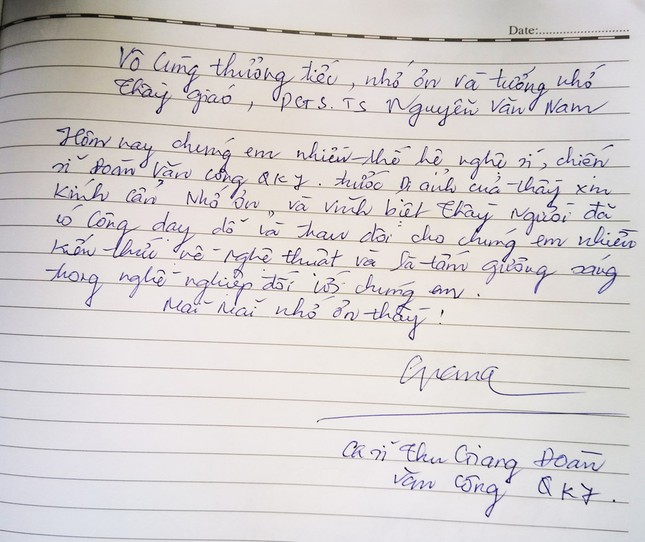 Date:
Vô cùng thương tiếc, nhớ ơn và tưởng nhớ
thầy giáo, PGS.TS Nguyễn Văn Nam
Hôm nay chúng em nhiều thế hệ nghệ sĩ, chiến
sĩ Đoàn Văn công QK7. trước Di ảnh của thầy xin
kính cẩn Nhớ ơn, và vĩnh biệt thầy Người đã
có công dạy dỗ và trao dồi cho chúng em nhiều
kiến thức về nghệ thuật và là tấm gương sáng
trong nghề nghiệp đối với chúng em.
Mãi Mãi nhớ ơn thầy!
Giang
Ca sĩ Thu Giang Đoàn
Văn Công QK7.